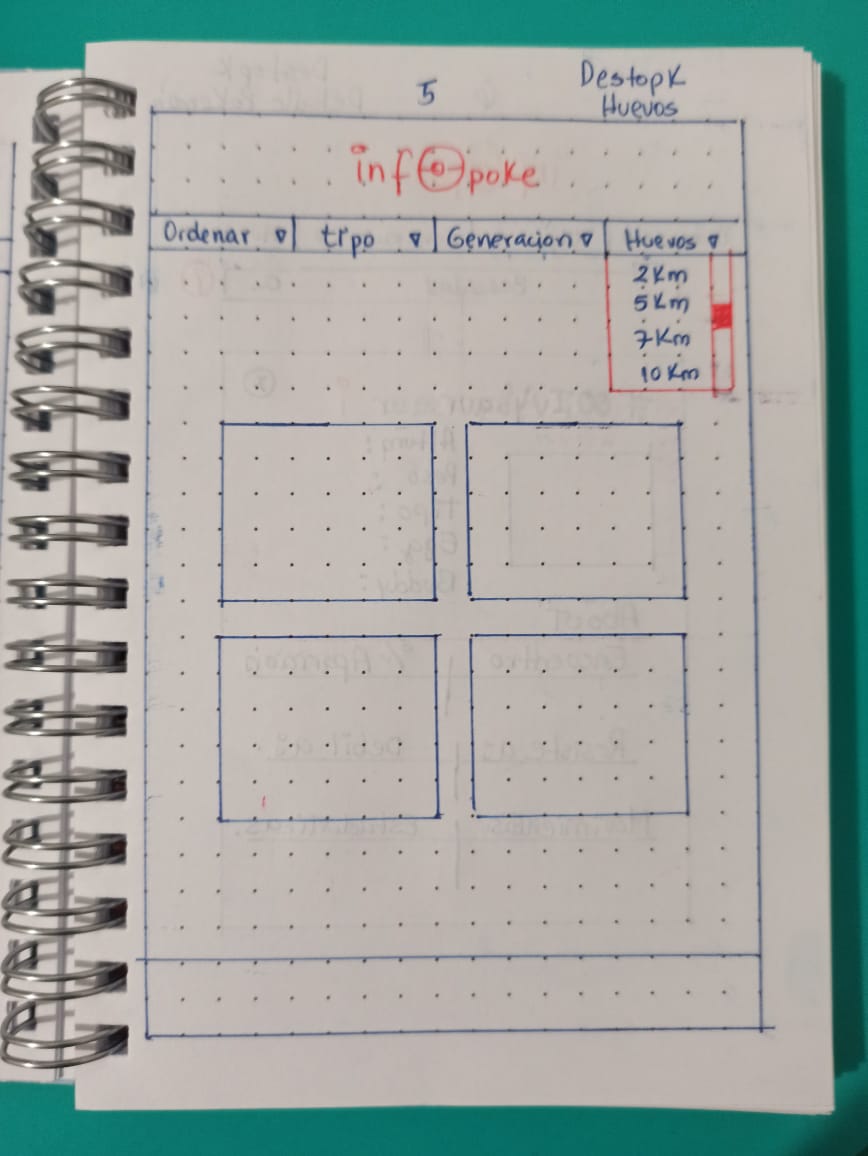 5
Destopk
Huevos
infopoke
Ordenar tipo Generacion Huevos
2 Km
5 Km
7 Km
10 Km